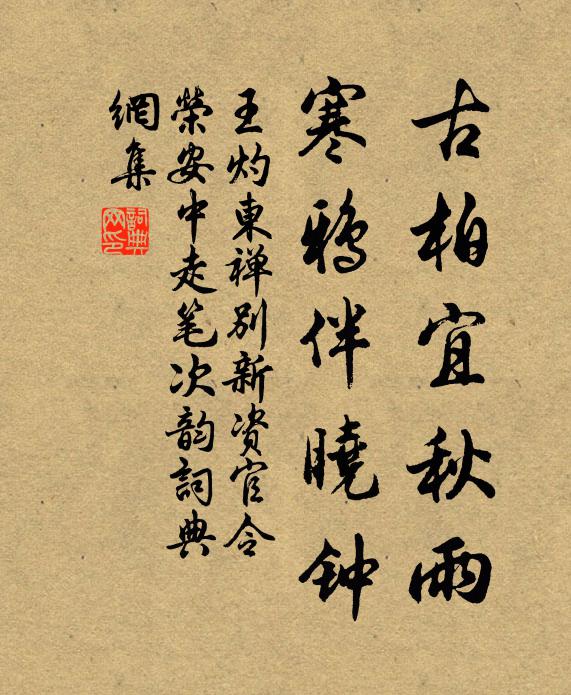 古柏宜秋雨
寒鴉伴曉钟
王灼東禅別新资官令
榮安中走笔次韵詞典
網集
詞典网印